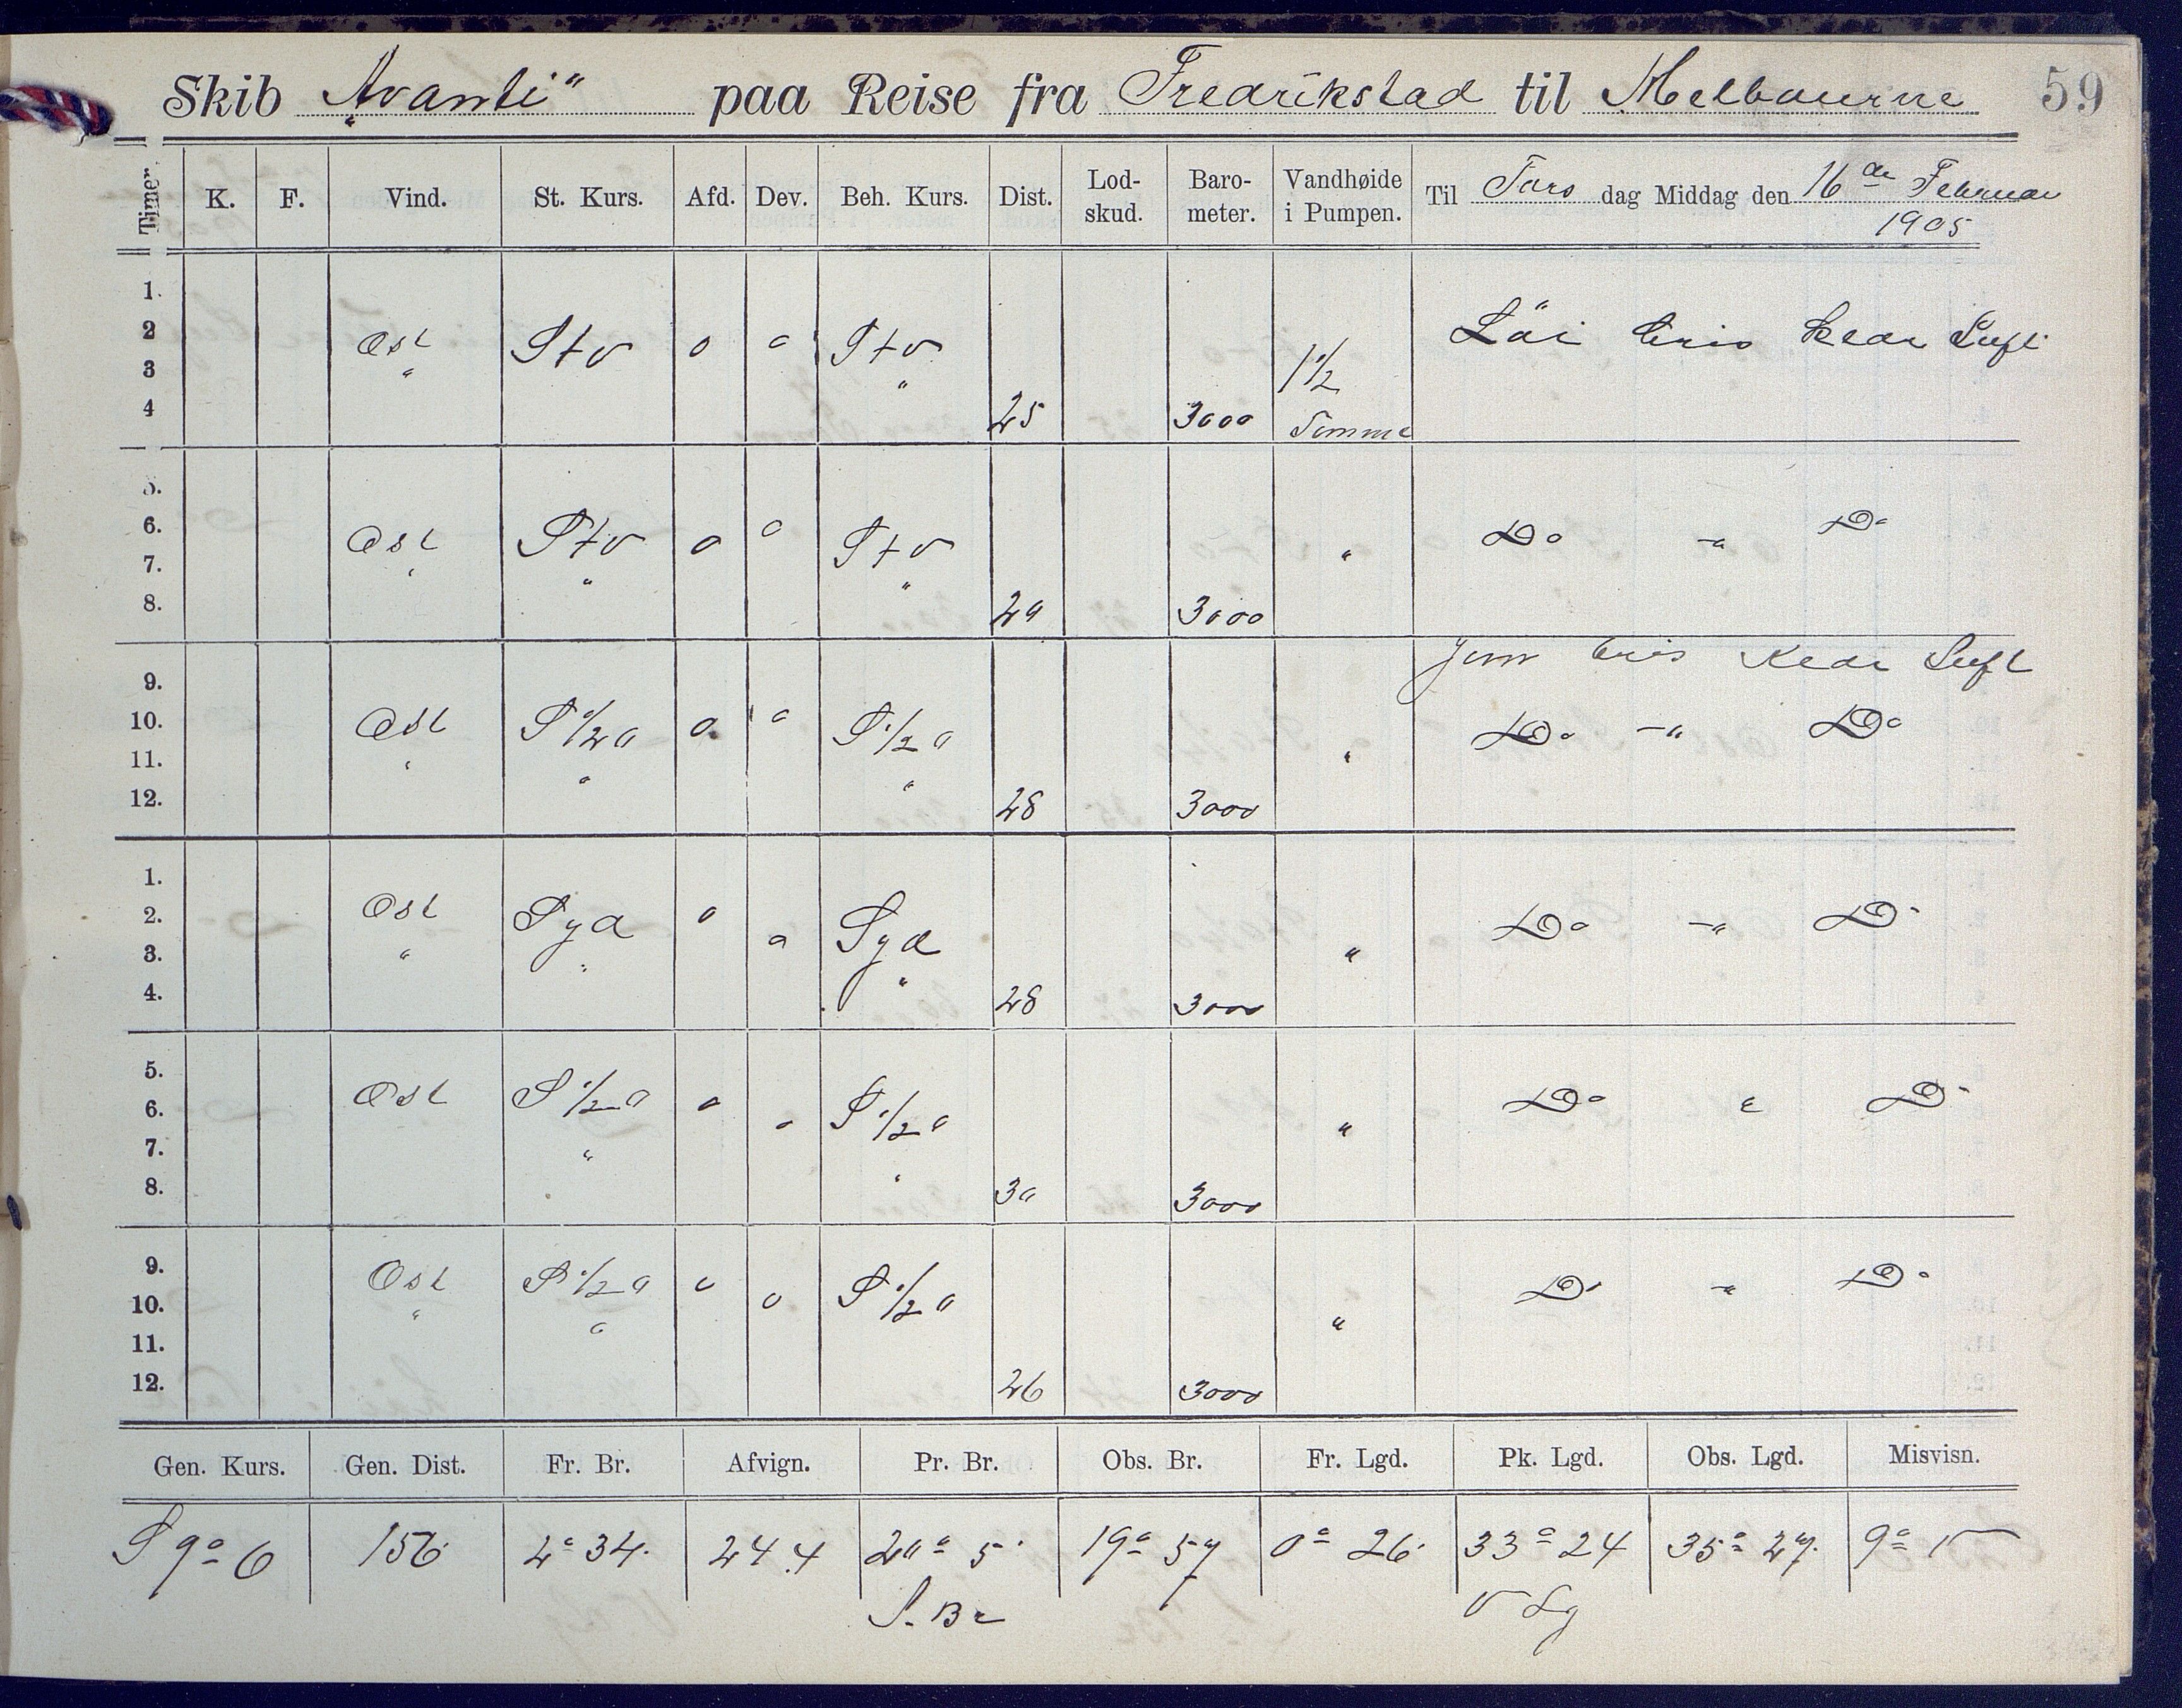 Skib „Avanti“ paa Reise fra Fredrikstad til Melbourne 59
Timer. K. F. Vind. St. Kurs. Afd. Dev. Beh. Kurs. Dist. Lod-skud. Baro-meter. Vandhøide i Pumpen. Til Tors dag Middag den 16de Februar 1905
1.
2 Ost StV 0 0 StV Löi Bris klar Luft
3 " " 1 1/2
4 25 3000 Tomme
5.
6. Ost StV 0 0 StV " Do -"- Do
7. " " "
8. 29 3000
Jevn Bris klar Luft
9.
10. Ost S 1/2 O 0 0 S 1/2 O Do -"- Do
11. " " " "
12. 28 3000
1.
2. Ost Syd 0 0 Syd Do -"- Do
3. " " " "
4. 28 3000
5.
6. Ost S 1/2 O 0 0 S 1/2 O Do " Do
7. " " "
8. 30 3000
9.
10. Ost S 1/2 O 0 0 S 1/2 O Do -"- Do
11. " " "
12. 26 3000
Gen. Kurs. Gen. Dist. Fr. Br. Afvign. Pr. Br. Obs. Br. Fr. Lgd. Pk. Lgd. Obs. Lgd. Misvisn.
S 9° 6 156 2° 34 24.4 20° 5' 19° 57 0° 26' 33° 24 35° 27 9° V
S. Br V Lg